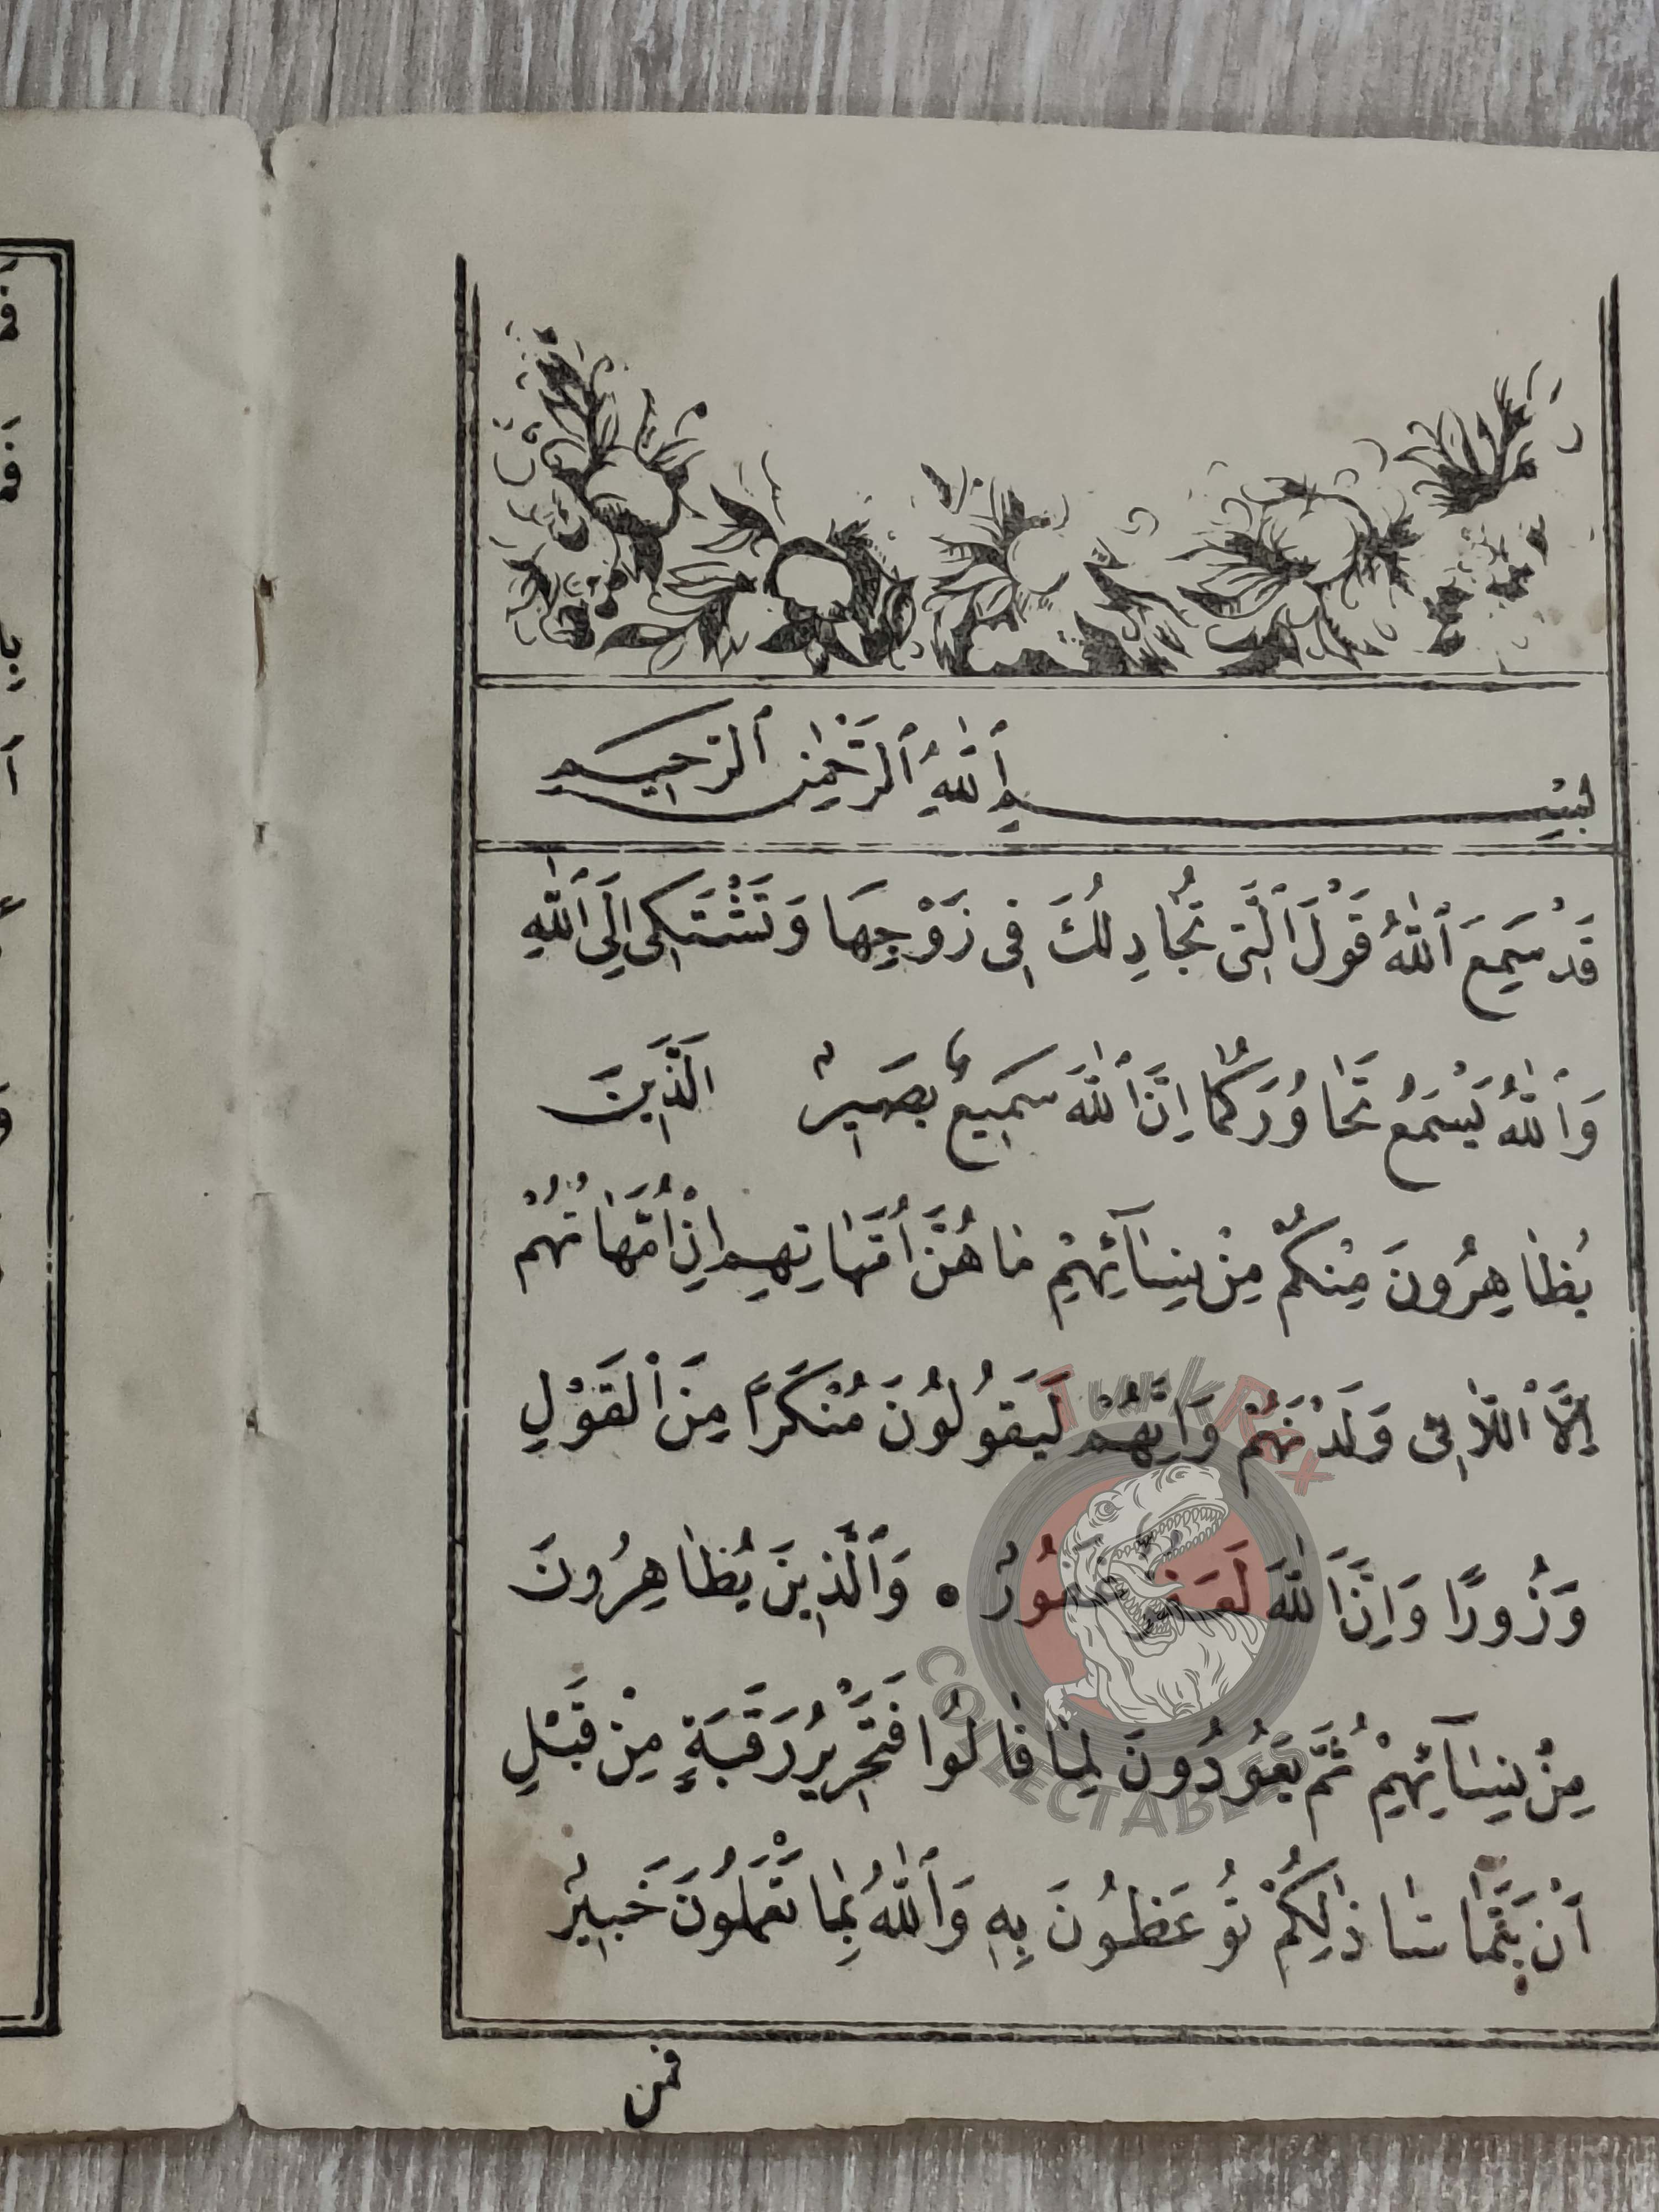 بِسْمِ ٱللّٰهِ ٱلرَّحْمٰنِ ٱلرَّحِيمِ
قَدْ سَمِعَ ٱللّٰهُ قَوْلَ ٱلَّتِى تُجَادِلُكَ فِى زَوْجِهَا وَتَشْتَكِى اِلَى ٱللّٰهِ
وَٱللّٰهُ يَسْمَعُ تَحَاوُرَكُمَا اِنَّ ٱللّٰهَ سَمِيعٌ بَصِيرٌ اَلَّذِينَ
يُظَاهِرُونَ مِنْكُمْ مِنْ نِسَآئِهِمْ مَا هُنَّ اُمَّهَاتِهِمْ اِنْ اُمَّهَاتُهُمْ
اِلَّا ٱللَّائِى وَلَدْنَهُمْ وَاِنَّهُمْ لَيَقُولُونَ مُنْكَرًا مِنَ ٱلْقَوْلِ
وَزُورًا وَاِنَّ ٱللّٰهَ لَعَفُوٌّ غَفُورٌ • وَٱلَّذِينَ يُظَاهِرُونَ
مِنْ نِسَآئِهِمْ ثُمَّ يَعُودُونَ لِمَا قَالُوا فَتَحْرِيرُ رَقَبَةٍ مِنْ قَبْلِ
اَنْ يَتَمَآسَّا ذٰلِكُمْ تُوعَظُونَ بِهِ وَٱللّٰهُ بِمَا تَعْمَلُونَ خَبِيرٌ
فمن
TurkRex
COLLECTABLES